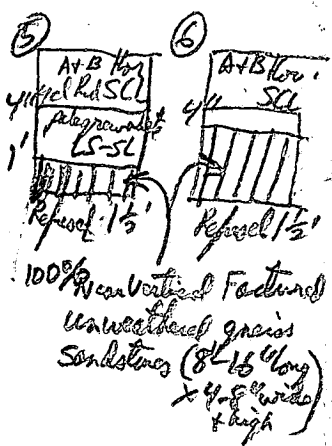 5
A+B Hor
4" yel Rd SCL
pale gray
LS-SL
1'
Refusal 1½'
6
A+B Hor.
SCL
4"
Refusal 1½'
100% Near Vertical Factured
unweathered gneiss
Sandstones (8"-16" long
x 4-8" wide
+ high)